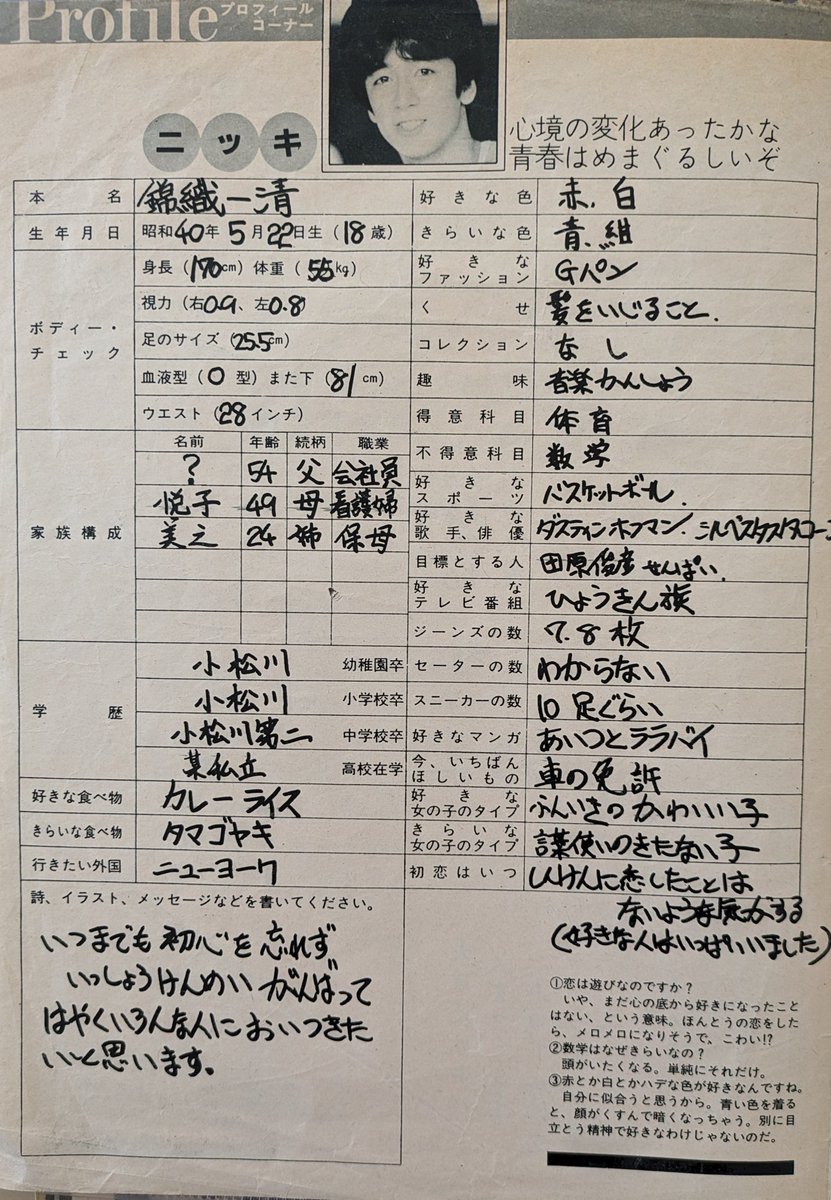 Profile プロフィールコーナー
ニッキ
心境の変化あったかな
青春はめまぐるしいぞ
本名 錦織一清
生年月日 昭和40年5月22日生(18歳)
ボディー・チェック
身長(170cm)体重(55kg)
視力(右0.9、左0.8)
足のサイズ(25.5cm)
血液型(O型)また下(81cm)
ウエスト(28インチ)
家族構成
名前 年齢 続柄 職業
? 54 父 会社員
悦子 49 母 看護婦
美之 24 姉 保母
学歴
小松川 幼稚園卒
小松川 小学校卒
小松川第二 中学校卒
某私立 高校在学
好きな食べ物 カレーライス
きらいな食べ物 タマゴヤキ
行きたい外国 ニューヨーク
詩、イラスト、メッセージなどを書いてください。
いつまでも初心を忘れず
いっしょうけんめいがんばって
はやくいろんな人においつきた
いと思います。
好きな色 赤、白
きらいな色 青、紺
好きなファッション Gパン
くせ 髪をいじること。
コレクション なし
趣味 音楽かんしょう
得意科目 体育
不得意科目 数学
好きなスポーツ バスケットボール
好きな歌手、俳優 ダスティンホフマン、シルベスタスタローン
目標とする人 田原俊彦せんぱい
好きなテレビ番組 ひょうきん族
ジーンズの数 7.8枚
セーターの数 わからない
スニーカーの数 10足ぐらい
好きなマンガ あいつとララバイ
今、いちばんほしいもの 車の免許
好きな女の子のタイプ ふんいきのかわいい子
きらいな女の子のタイプ 言葉使いのきたない子
初恋はいつ しんけんに恋したことは
ないような気がする
(好きな人はいっぱいいました)
①恋は遊びなのですか?
いや、まだ心の底から好きになったこと
はない、という意味。ほんとうの恋をした
ら、メロメロになりそうで、こわい!?
②数学はなぜきらいなの?
頭がいたくなる。単純にそれだけ。
③赤とか白とかハデな色が好きなんですね。
自分に似合うと思うから。青い色を着る
と、顔がくすんで暗くなっちゃう。別に目
立とう精神で好きなわけじゃないのだ。